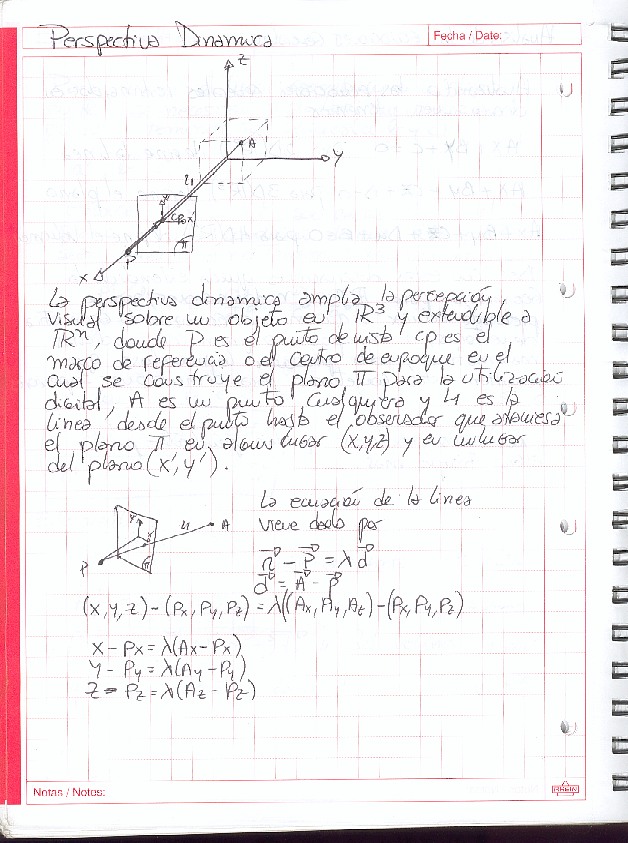 Perspectiva Dinamica
Fecha / Date:
Z
A
Y
L1
y
CP
x
π
P
X
La perspectiva dinamica amplia la percepción
visual sobre un objeto en IR³ y extendible a
IRⁿ, donde P es el punto de vista CP es el
marco de referencia o el centro de enfoque en el
cual se construye el plano π para la utilización
digital, A es un punto cualquiera y L1 es la
linea desde el punto hasta el observador que atraviesa
el plano π en algun lugar (x,y,z) y en un lugar
del plano (x',y').
La ecuación de la linea
viene dado por
y
x
L1
A
P
π
r - P = λd
d = A - P
(x,y,z)-(Px,Py,Pz)=λ((Ax,Ay,Az)-(Px,Py,Pz)
x - Px = λ(Ax - Px)
y - Py = λ(Ay - Py)
z - Pz = λ(Az - Pz)
Notas / Notes: